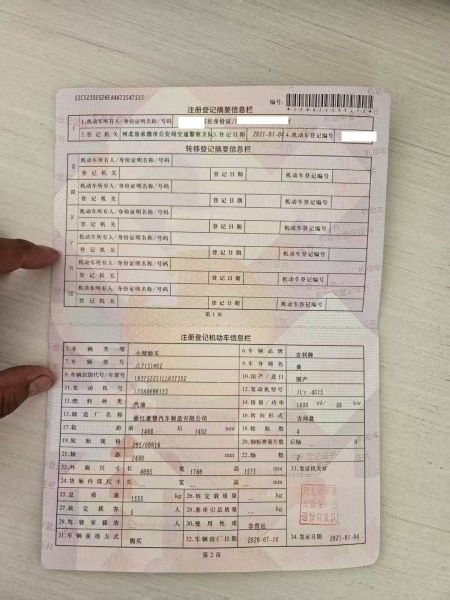 注册登记摘要信息栏
编号:
Ⅰ 1.机动车所有人/身份证明名称/号码 居民身份证/
2.登记机关 河北省承德市公安局交通警察支队 3.登记日期 2021-01-04 4.机动车登记编号
转移登记摘要信息栏
Ⅱ 机动车所有人/身份证明名称/号码
登记机关 登记日期 机动车登记编号
Ⅲ 机动车所有人/身份证明名称/号码
登记机关 登记日期 机动车登记编号
机动车所有人/身份证明名称/号码
登记机关 登记日期 机动车登记编号
Ⅴ 机动车所有人/身份证明名称/号码
登记机关 登记日期 机动车登记编号
Ⅵ 机动车所有人/身份证明名称/号码
登记机关 登记日期 机动车登记编号
Ⅶ 机动车所有人/身份证明名称/号码
登记机关 登记日期 机动车登记编号
第1页
注册登记机动车信息栏
5.车辆类型 小型轿车 6.车辆品牌 吉利牌
7.车辆型号 8.车身颜色 黄
9.车辆识别代号/车架号 10.国产/进口 国产
11.发动机号 12.发动机型号
13.燃料种类 汽油 14.排量/功率 1498 ml/ 80 kw
15.制造厂名称 浙江豪情汽车制造有限公司 16.转向形式 方向盘
17.轮距 前 1460 后 1492 mm 18.轮胎数 4
19.轮胎规格 205/60R16 20.钢板弹簧片数 后轴 --
21.轴距 2480 mm 22.轴数 2
23.外廓尺寸 长 4005 宽 1760 高 1575 mm 33.发证机关章
24.货厢内部尺寸 长 -- 宽 -- 高 -- mm
25.总质量 1555 kg 26.核定载质量 -- kg
27.核定载客 5 人 28.准牵引总质量 -- kg
29.驾驶室载客 -- 人 30.使用性质 非营运
31.车辆获得方式 购买 32.车辆出厂日期 2020-07-16 34.发证日期 2021-01-04
第2页